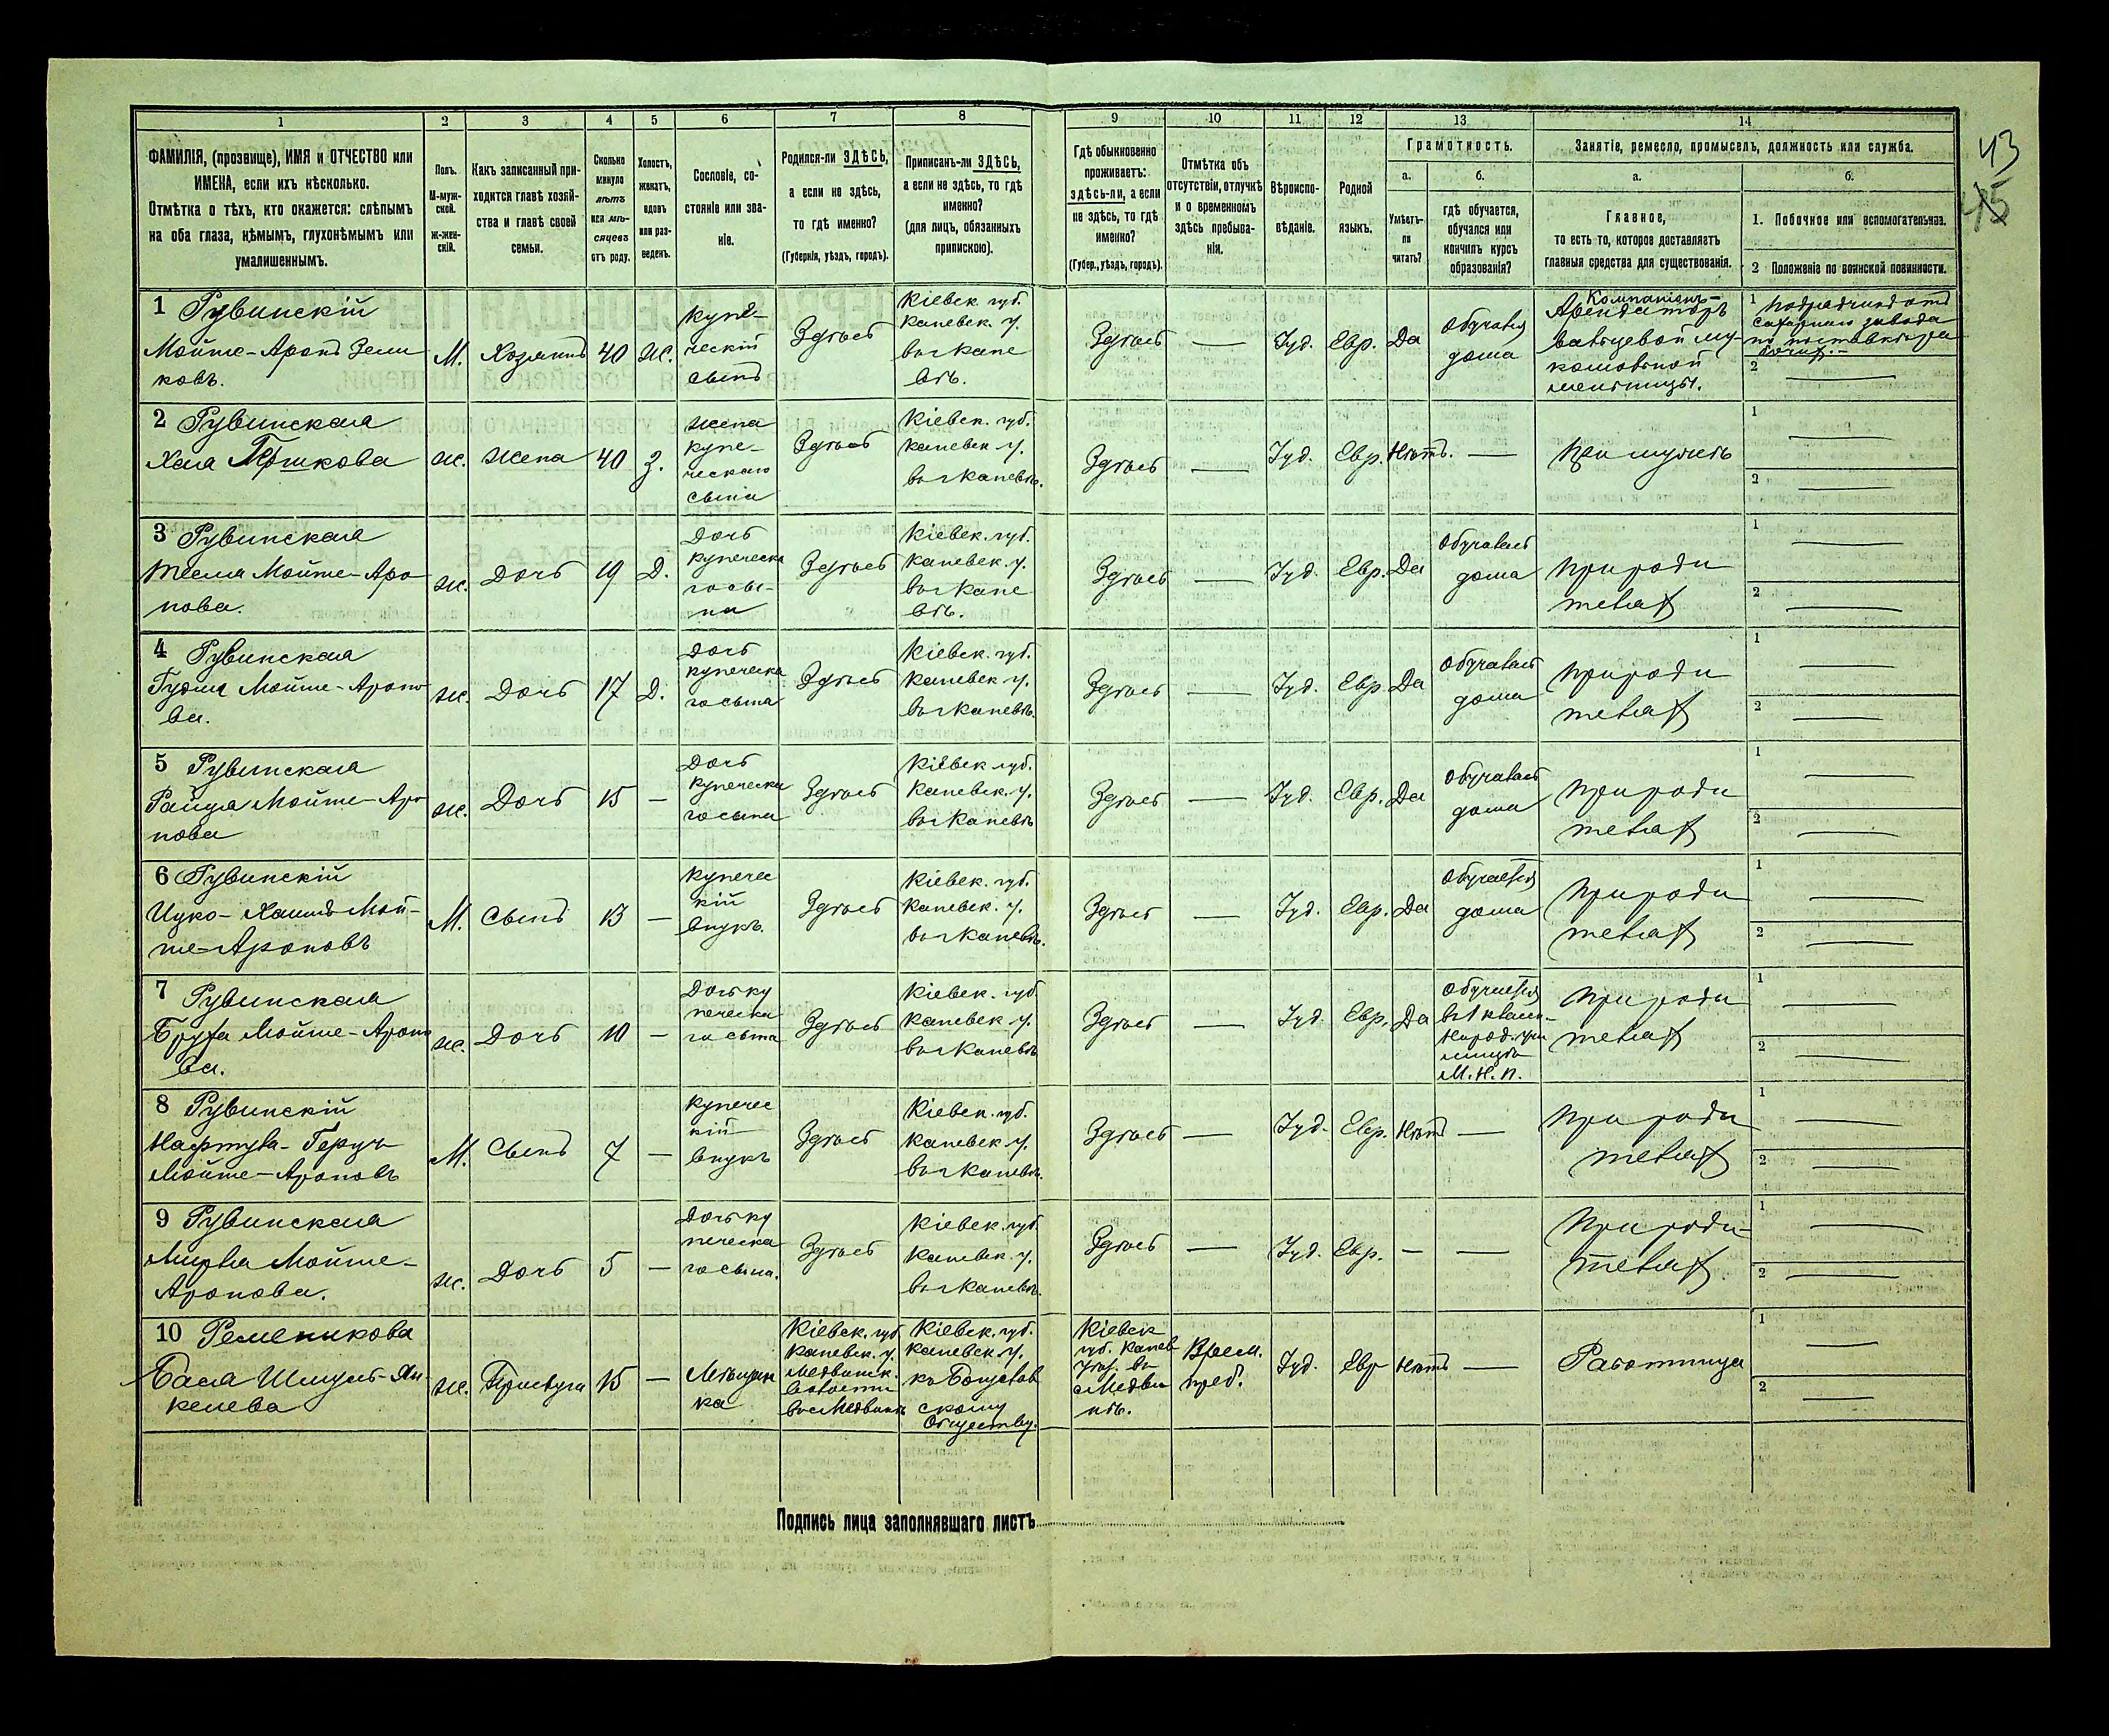 1 2 3 4 5 6 7 8 9 10 11 12 13 14
43
45
ФАМИЛІЯ, (прозвище), ИМЯ и ОТЧЕСТВО или
ИМЕНА, если ихъ нѣсколько.
Отмѣтка о тѣхъ, кто окажется: слѣпымъ
на оба глаза, нѣмымъ, глухонѣмымъ или
умалишеннымъ.
Полъ.
М-муж-
ской.
Ж-жен-
скій.
Какъ записанный при-
ходится главѣ хозяй-
ства и главѣ своей
семьи.
Сколько
минуло
лѣтъ
или мѣ-
сяцевъ
отъ роду.
Холостъ,
женатъ,
вдовъ
или раз-
веденъ.
Сословіе, со-
стояніе или зва-
ніе.
Родился-ли ЗДѢСЬ,
а если не здѣсь,
то гдѣ именно?
(Губернія, уѣздъ, городъ).
Приписанъ-ли ЗДѢСЬ,
а если не здѣсь, то гдѣ
именно?
(для лицъ, обязанныхъ
припискою).
Гдѣ обыкновенно
проживаетъ:
здѣсь-ли, а если
не здѣсь, то гдѣ
именно?
(Губер., уѣздъ, городъ).
Отмѣтка объ
отсутствіи, отлучкѣ
и о временномъ
здѣсь пребыва-
ніи.
Вѣроиспо-
вѣданіе.
Родной
языкъ.
Грамотность.
а.
Умѣетъ-
ли
читать?
б.
гдѣ обучается,
обучался или
кончилъ курсъ
образованія?
Занятіе, ремесло, промыселъ, должность или служба.
а.
Главное,
то есть то, которое доставляетъ
главныя средства для существованія.
б.
1. Побочное или вспомогательное.
2 Положеніе по воинской повинности.
1 Рувинскій
Мойше-Аронъ Зели
ковъ.
М.
Хозяинъ
40
Ж.
купе-
ческій
сынъ
Здѣсь
Кіевск. губ.
Каневск. у.
въ г Кане
вѣ.
Здѣсь
—
Іуд.
Евр.
Да
Обучался
дома
Компаніонъ-
Арендаторъ
вальцевой му-
комольной
мельницы.
1
сахарнаго завода
2 —
2 Рувинская
Хая Гершкова
ж.
жена
40
З.
жена
купе-
ческаго
сына
Здѣсь
Кіевск. губ.
Каневск у.
въ г Каневѣ.
Здѣсь
—
Іуд.
Евр.
Нѣтъ.
—
При мужѣ
1 —
2 —
3 Рувинская
Мойше-Аро
нова.
ж.
Дочь
19
Д.
Дочь
купеческа
го сы-
на
Здѣсь
Кіевск. губ.
Каневск. у.
въ г Кане
вѣ.
Здѣсь
—
Іуд.
Евр.
Да
Обучалась
дома
При роди
теляхъ
1 —
2 —
4 Рувинская
Мойше-Ароно
ва.
ж.
Дочь
17
Д.
Дочь
купеческа
го сына
Здѣсь
Кіевск. губ.
Каневск у.
въ г Каневѣ.
Здѣсь
—
Іуд.
Евр.
Да
Обучалась
дома
При роди
теляхъ
1 —
2 —
5 Рувинская
Мойше-Аро
нова
ж.
Дочь
15
—
Дочь
купеческа
го сына
Здѣсь
Кіевск губ.
Каневск. у.
въ г Каневѣ
Здѣсь
—
Іуд.
Евр.
Да
Обучалась
дома
При роди
теляхъ
1 —
2 —
6 Рувинскій
Ицко-Хаимъ Мой-
ше-Ароновъ
М.
Сынъ
13
—
купечес
кій
внукъ
Здѣсь
Кіевск. губ.
Каневск. у.
въ г Каневѣ.
Здѣсь
—
Іуд.
Евр.
Да
Обучается
дома
При роди
теляхъ
1 —
2 —
7 Рувинская
Мойше-Ароно
ва.
ж.
Дочь
10
—
Дочь ку
печеска
го сына
Здѣсь
Кіевск. губ
Каневск у.
въ г Каневѣ
Здѣсь
—
Іуд.
Евр.
Да
Обучается
М. Н. П.
При роди
теляхъ
1 —
2 —
8 Рувинскій
Мойше-Ароновъ
М.
Сынъ
7
—
купечес
кій
внукъ
Здѣсь
Кіевск. губ.
Каневск у.
въ г Каневѣ.
Здѣсь
—
Іуд.
Евр.
Нѣтъ
—
При роди
теляхъ
1 —
2 —
9 Рувинская
Мойше-
Аронова.
ж.
Дочь
5
—
Дочь ку
печеска
го сына.
Здѣсь
Кіевск. губ
Каневск. у.
въ г Каневѣ.
Здѣсь
—
Іуд.
Евр.
—
—
При роди-
теляхъ.
1 —
2 —
10 Ременикова
Бася Шмуль-Ян-
келева
ж.
Прислуга
15
—
Мѣщан
ка
Кіевск. губ
Каневск. у.
Медвинск.
волости
въ с Медвинѣ
Кіевск. губ.
Каневск. у.
къ Богуслав
скому
Обществу.
Кіевск
губ. Канев
уѣз. въ
с Медви
нѣ.
Врем.
преб.
Іуд.
Евр
Нѣтъ
—
Работница
1 —
2 —
Подпись лица заполнявшаго листъ